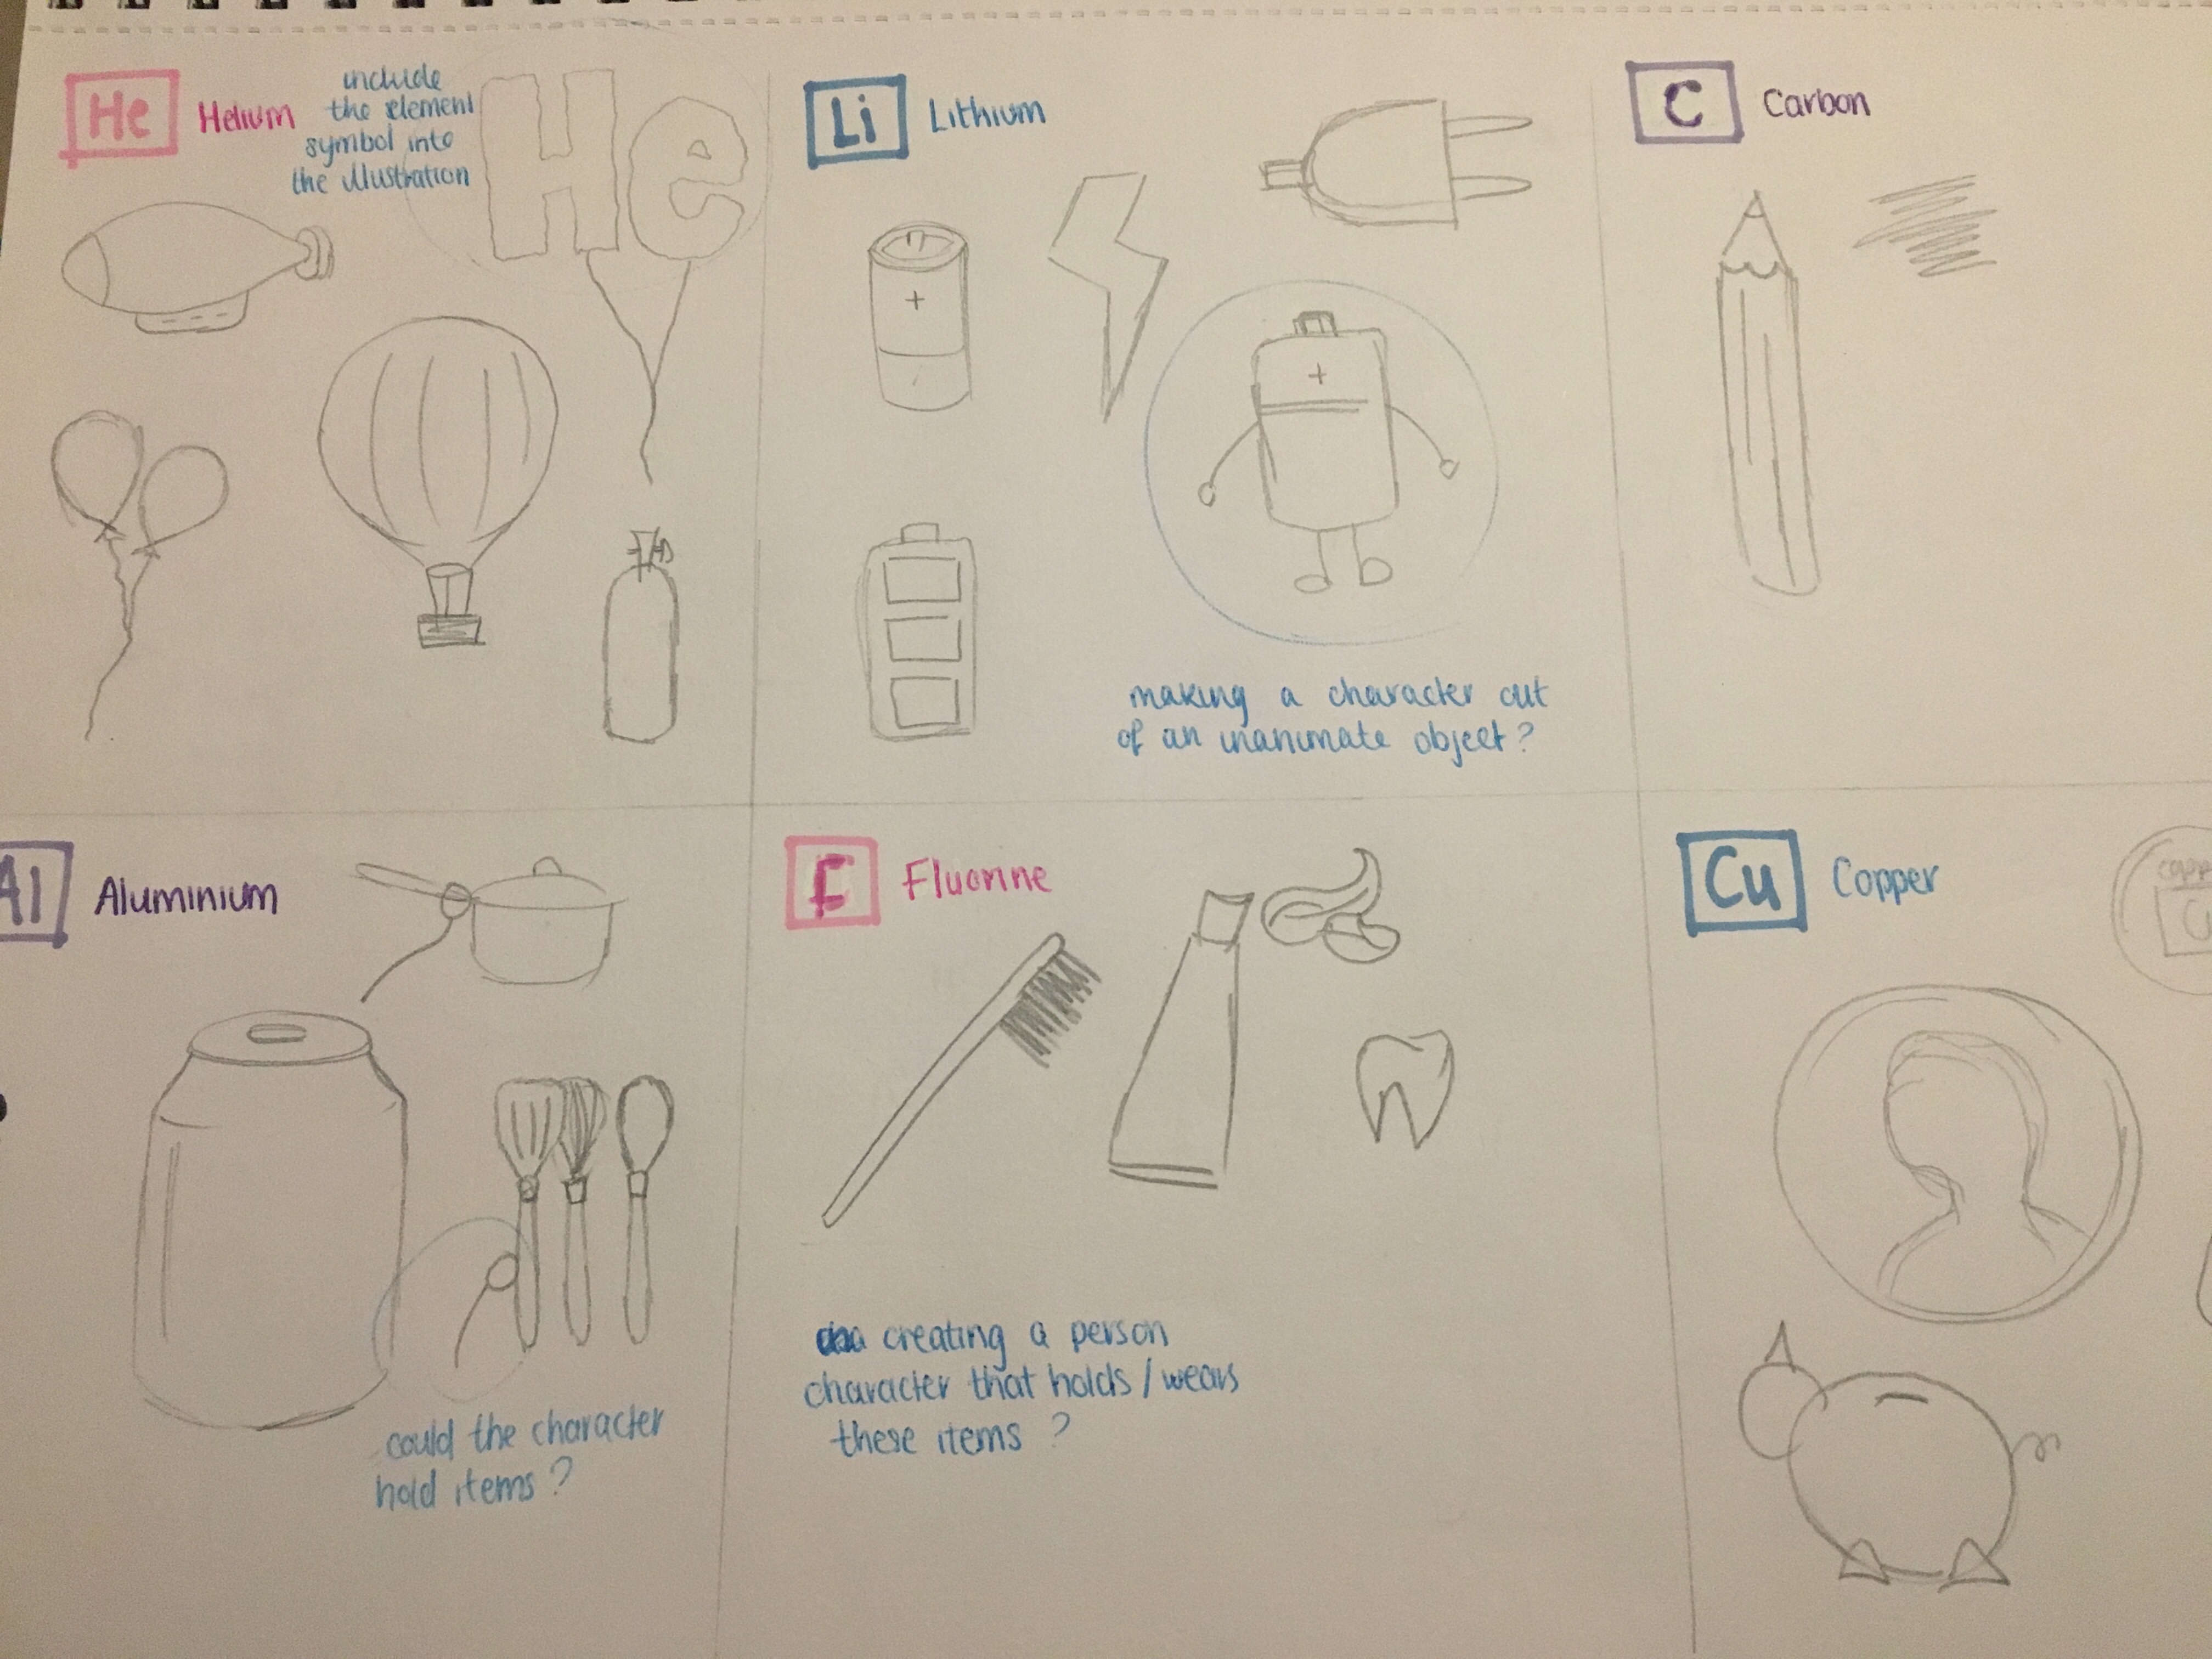 He Helium
include
the element
symbol into
the illustration
He
Li Lithium
+
+
making a character out
of an inanimate object?
C Carbon
Al Aluminium
could the character
hold items?
F Fluorine
creating a person
character that holds/wears
these items?
Cu Copper